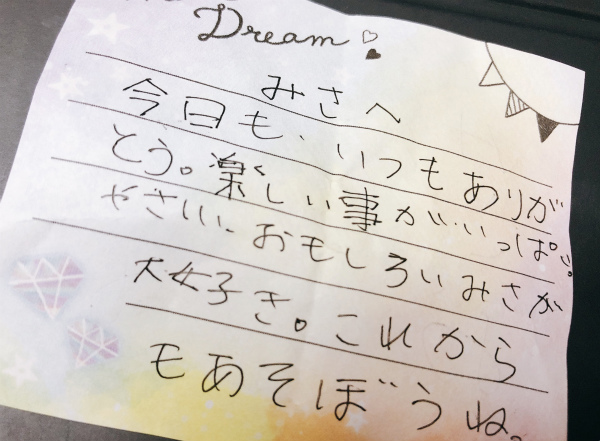 Dream
みさへ
今日も、いつもありが
とう。楽しい事が、いっぱい。
やさしい、おもしろいみさが
大好き。これから
モあそぼうね。